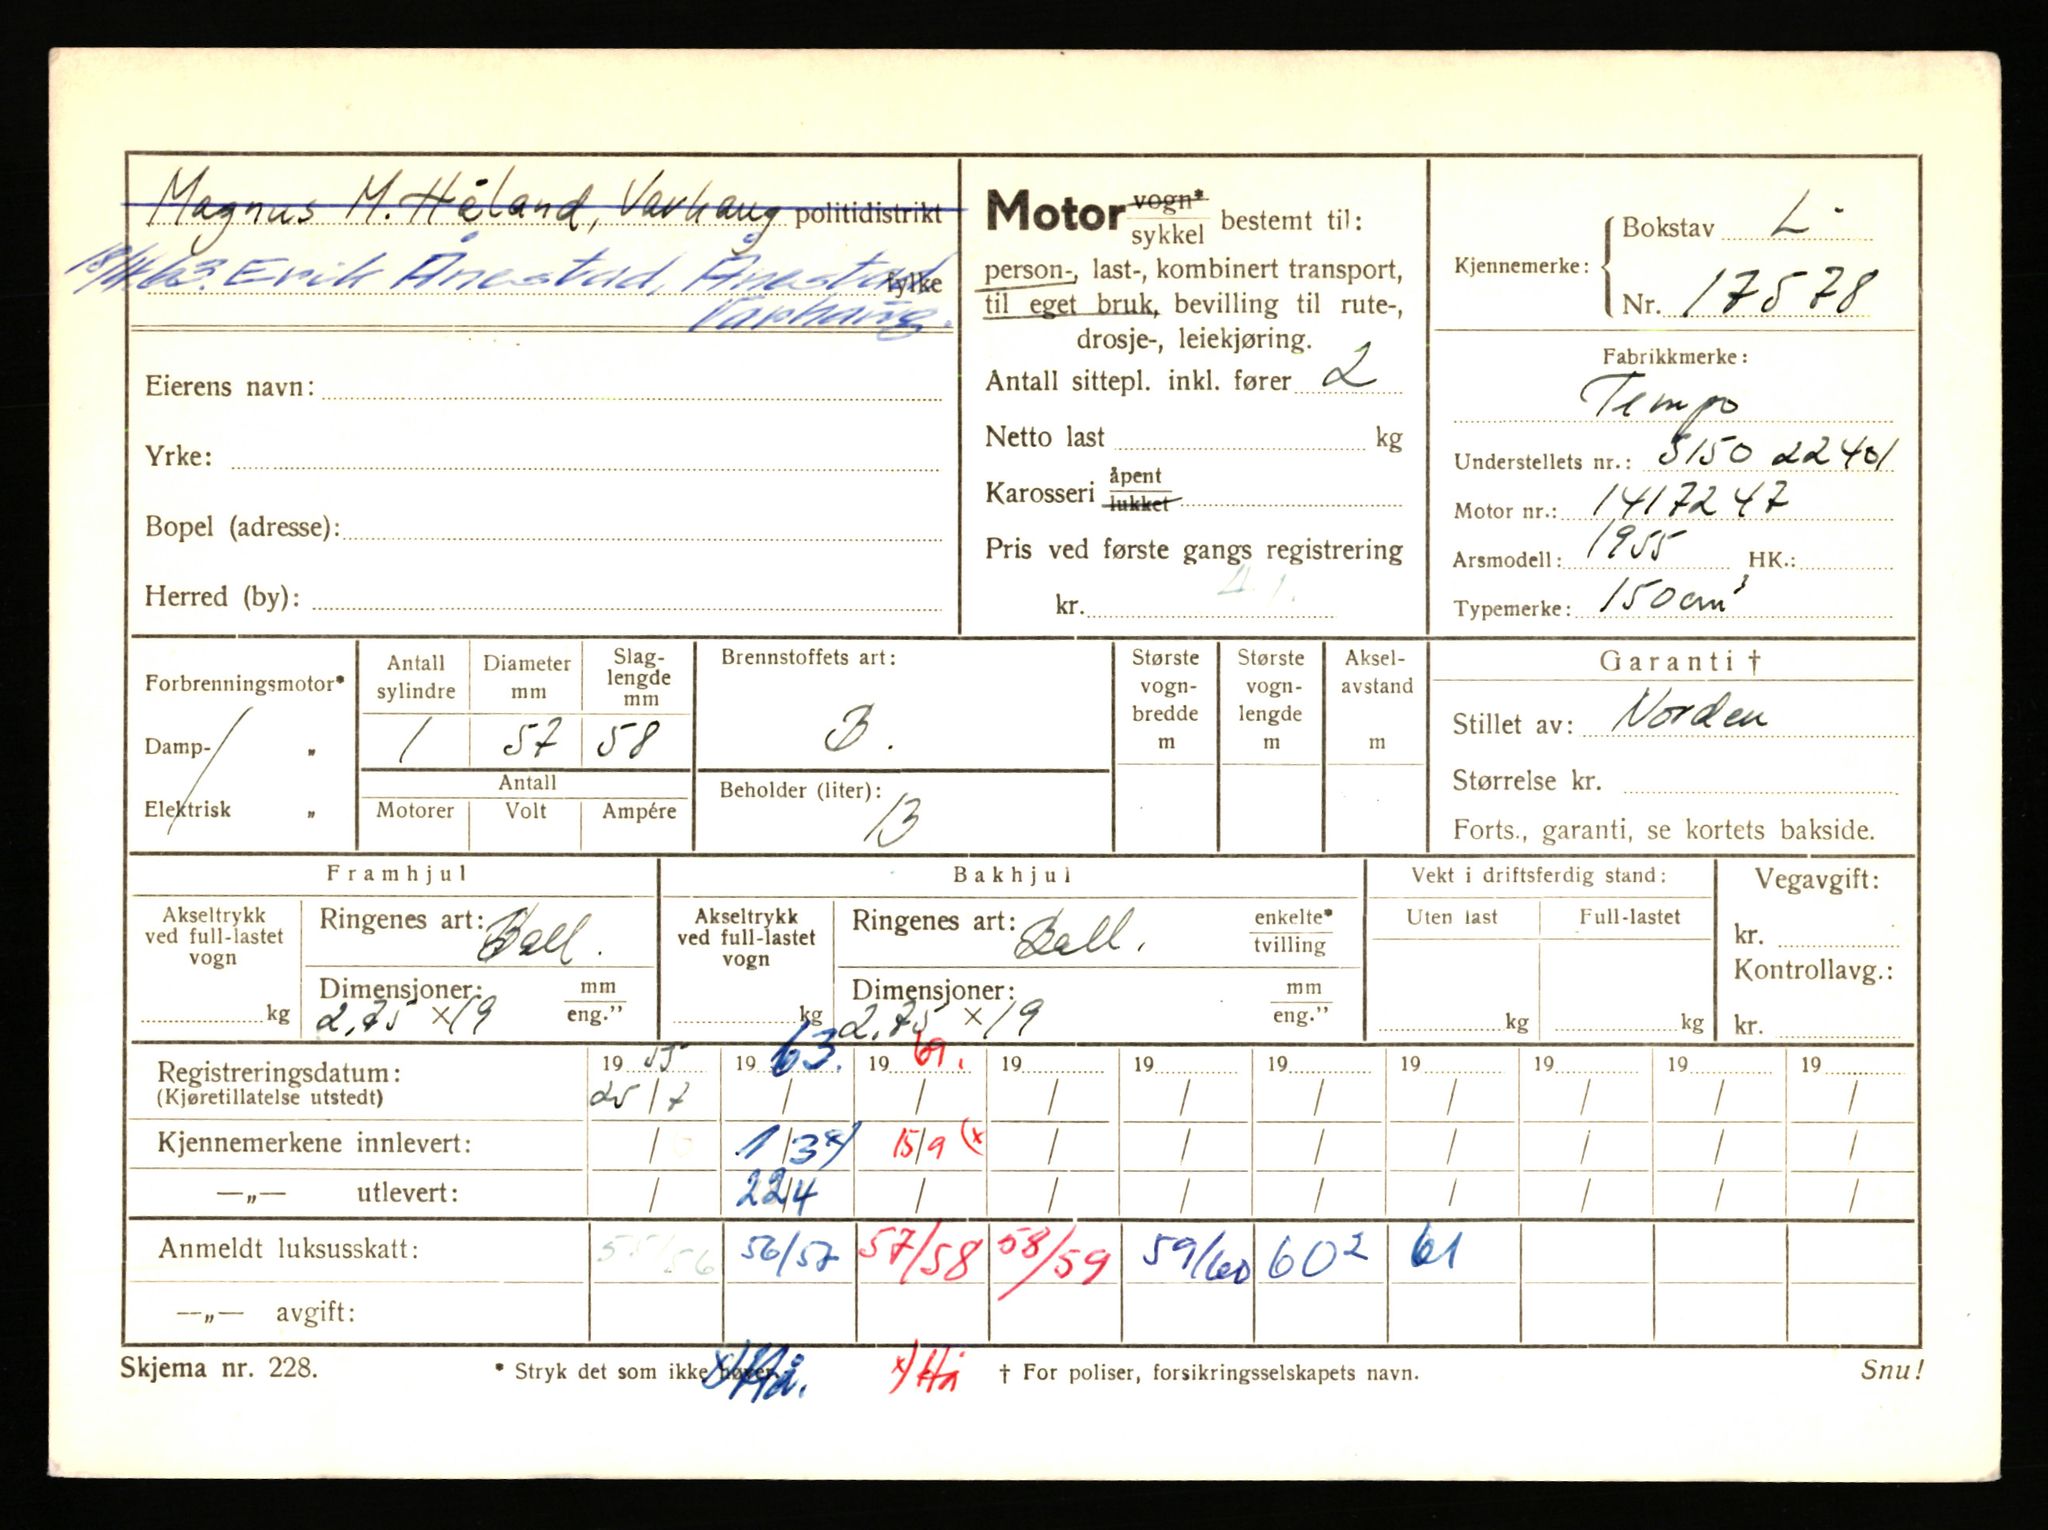 Magnus M. Håland, Varhaug politidistrikt
18/4.63. Erik Ånestad, Ånestad fylke
Varhaug.
Eierens navn:
Yrke:
Bopel (adresse):
Herred (by):
Motor vogn* sykkel bestemt til:
person-, last-, kombinert transport,
til eget bruk, bevilling til rute-,
drosje-, leiekjøring.
Antall sittepl. inkl. fører 2
Netto last kg
Karosseri åpent lukket
Pris ved første gangs registrering
kr.
Kjennemerke: Bokstav L.
Nr. 17578
Fabrikkmerke:
Tempo
Understellets nr.: 5150 22401
Motor nr.: 1417247
Arsmodell: 1955 HK.:
Typemerke: 150 cm³
Forbrenningsmotor*
Damp- „
Elektrisk „
Antall sylindre
1
Diameter mm
57
Slag-
lengde
mm
58
Antall
Motorer Volt Ampére
Brennstoffets art:
B.
Beholder (liter):
13
Største
vogn-
bredde
m
Største
vogn-
lengde
m
Aksel-
avstand
m
Garanti †
Stillet av: Norden
Størrelse kr.
Forts., garanti, se kortets bakside.
Framhjul
Akseltrykk
ved full-lastet
vogn
kg
Ringenes art: Ball.
Dimensjoner: mm
2,75 × 19 eng.”
Bakhjul
Akseltrykk
ved full-lastet
vogn
kg
Ringenes art: Ball. enkelte*
tvilling
Dimensjoner: mm
2,75 × 19 eng.”
Vekt i driftsferdig stand:
Uten last Full-lastet
kg kg
Vegavgift:
kr.
Kontrollavg.:
kr.
Registreringsdatum: 19 55 19 63. 19 61. 19 19 19 19 19 19 19
(Kjøretillatelse utstedt) 25/7 / / / / / / / / /
Kjennemerkene innlevert: / 1/3 x) 15/9 (x / / / / / / /
—„— utlevert: / 22/4 / / / / / / / /
Anmeldt luksusskatt: 55/56 56/57 57/58 58/59 59/60 60² 61
—„— avgift:
Skjema nr. 228. * Stryk det som ikke høver. x) Hå. x) Hå † For poliser, forsikringsselskapets navn. Snu!